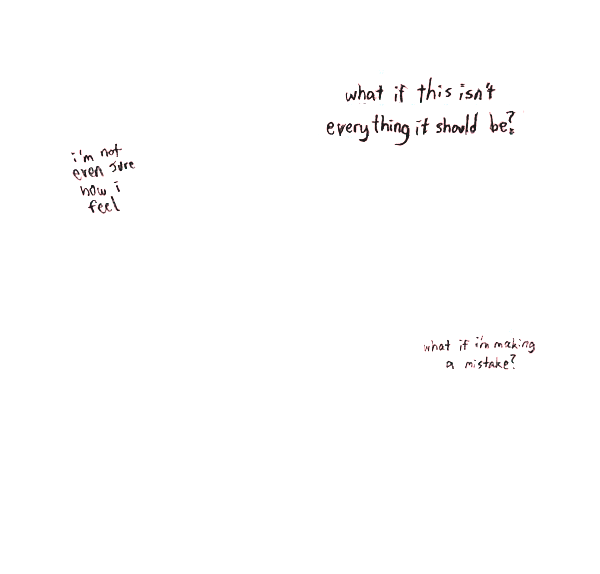 what if this isn't
everything it should be?
i'm not
even sure
how i
feel
what if i'm making
a mistake?